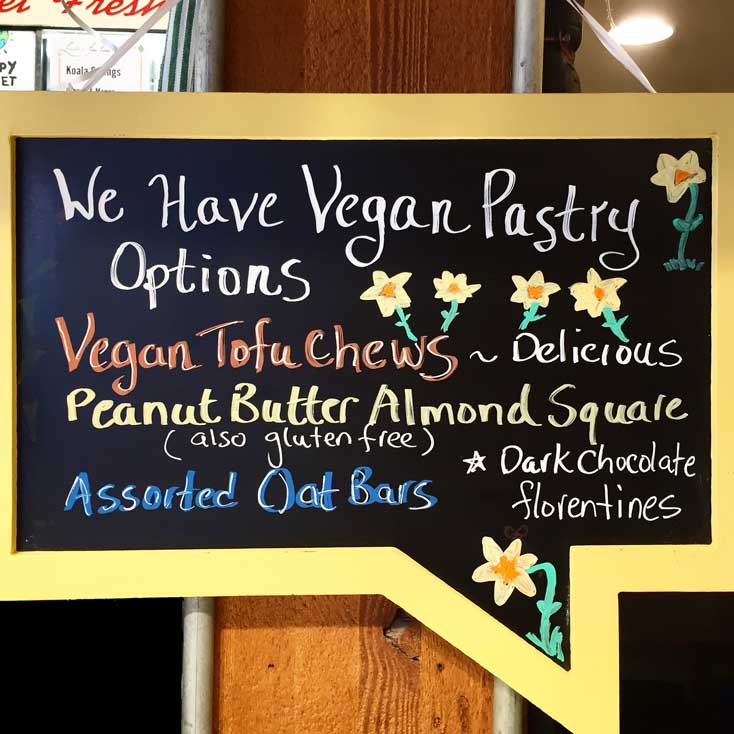 et Fresh
PY
ET
Koala
We Have Vegan Pastry
Options
Vegan Tofu Chews ~ Delicious
Peanut Butter Almond Square
(also gluten free)
☆ Dark Chocolate
florentines
Assorted Oat Bars